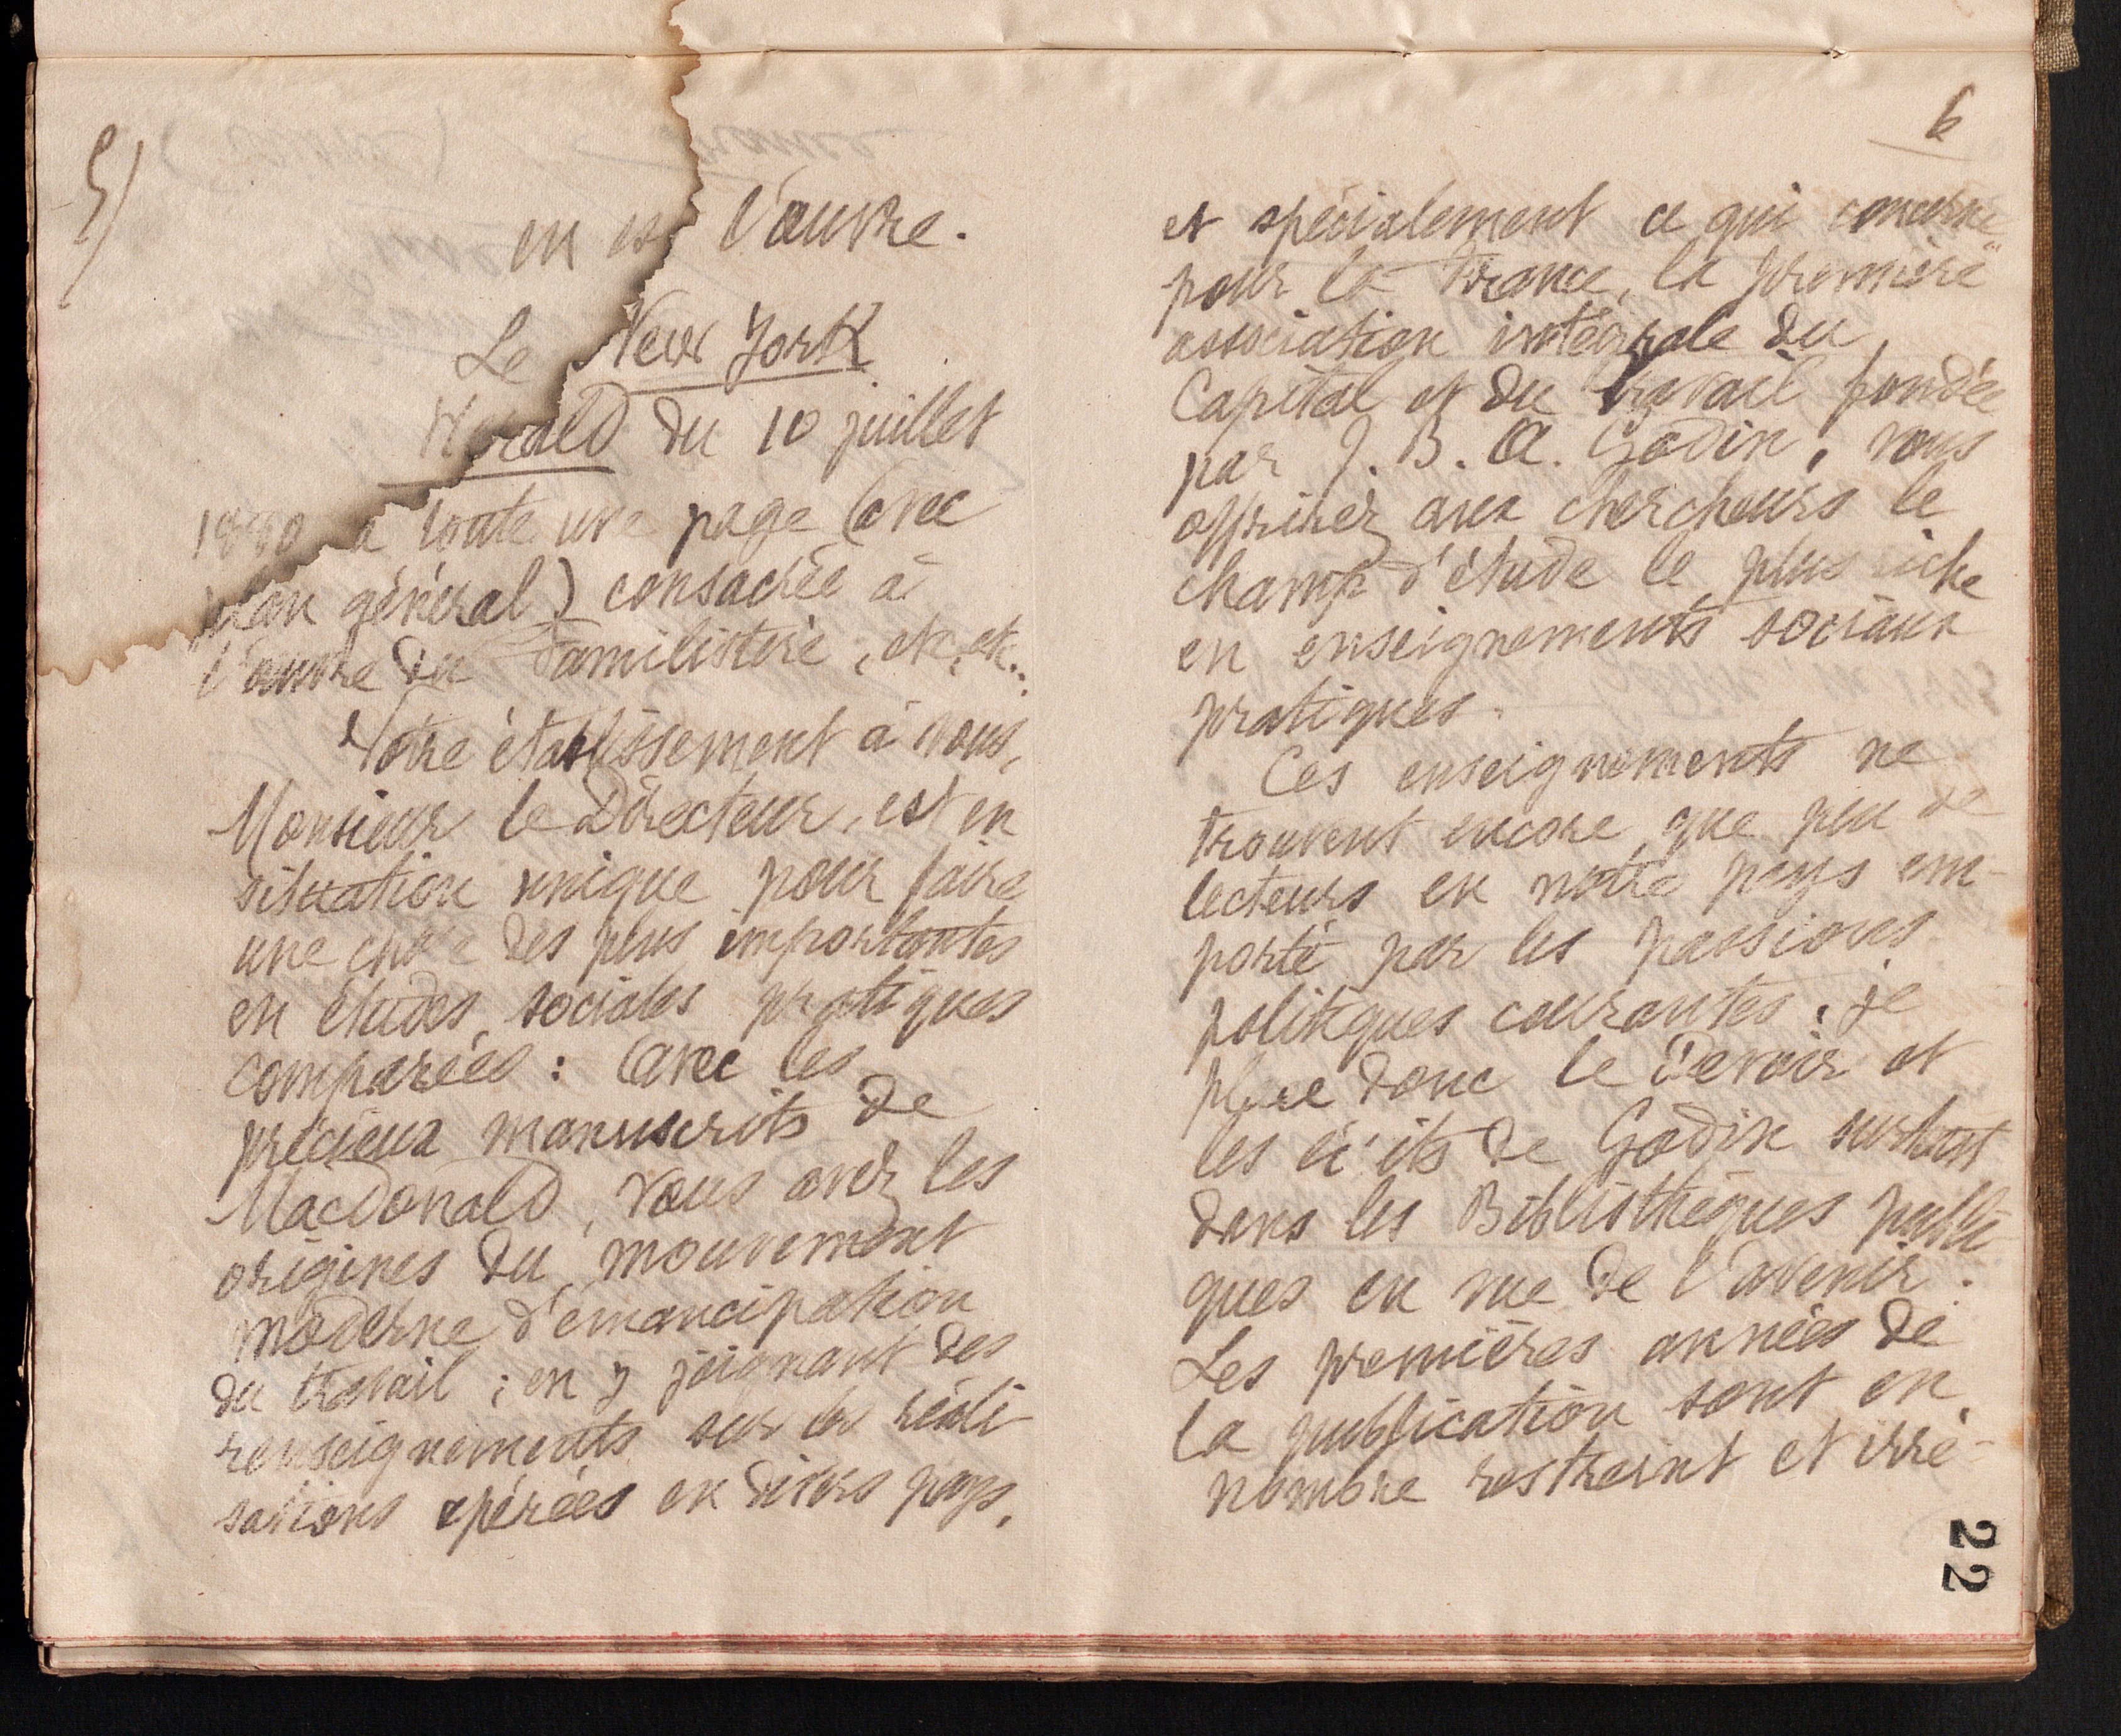 5)
en est l'œuvre.
Le New York
Herald du 10 juillet
1880 a toute une page (avec
plan général) consacrée à
l'œuvre du Familistère ; etc, etc..
Votre établissement à vous,
Monsieur le Directeur, est en
situation unique pour faire
une chose des plus importantes
en études sociales pratiques
comparées : Avec les
précieux manuscrits de
MacDonald, vous avez les
origines du mouvement
moderne d'émancipation
du travail ; en y joignant des
renseignements sur les réali
sations opérées en divers pays,
6
et spécialement ce qui concerne
pour la France, la première
association intégrale du
Capital et du travail fondée
par J. B. A. Godin, vous
offririez aux chercheurs le
champ d'étude le plus riche
en enseignements sociaux
pratiques.
Ces enseignements ne
trouvent encore que peu de
lecteurs en notre pays em-
porté par les passions
politiques courantes. Je
place donc le Devoir et
les écrits de Godin surtout
dans les Bibliothèques publi-
ques en vue de l'avenir.
Les premières années de
la publication sont en
nombre restreint et irré-
22